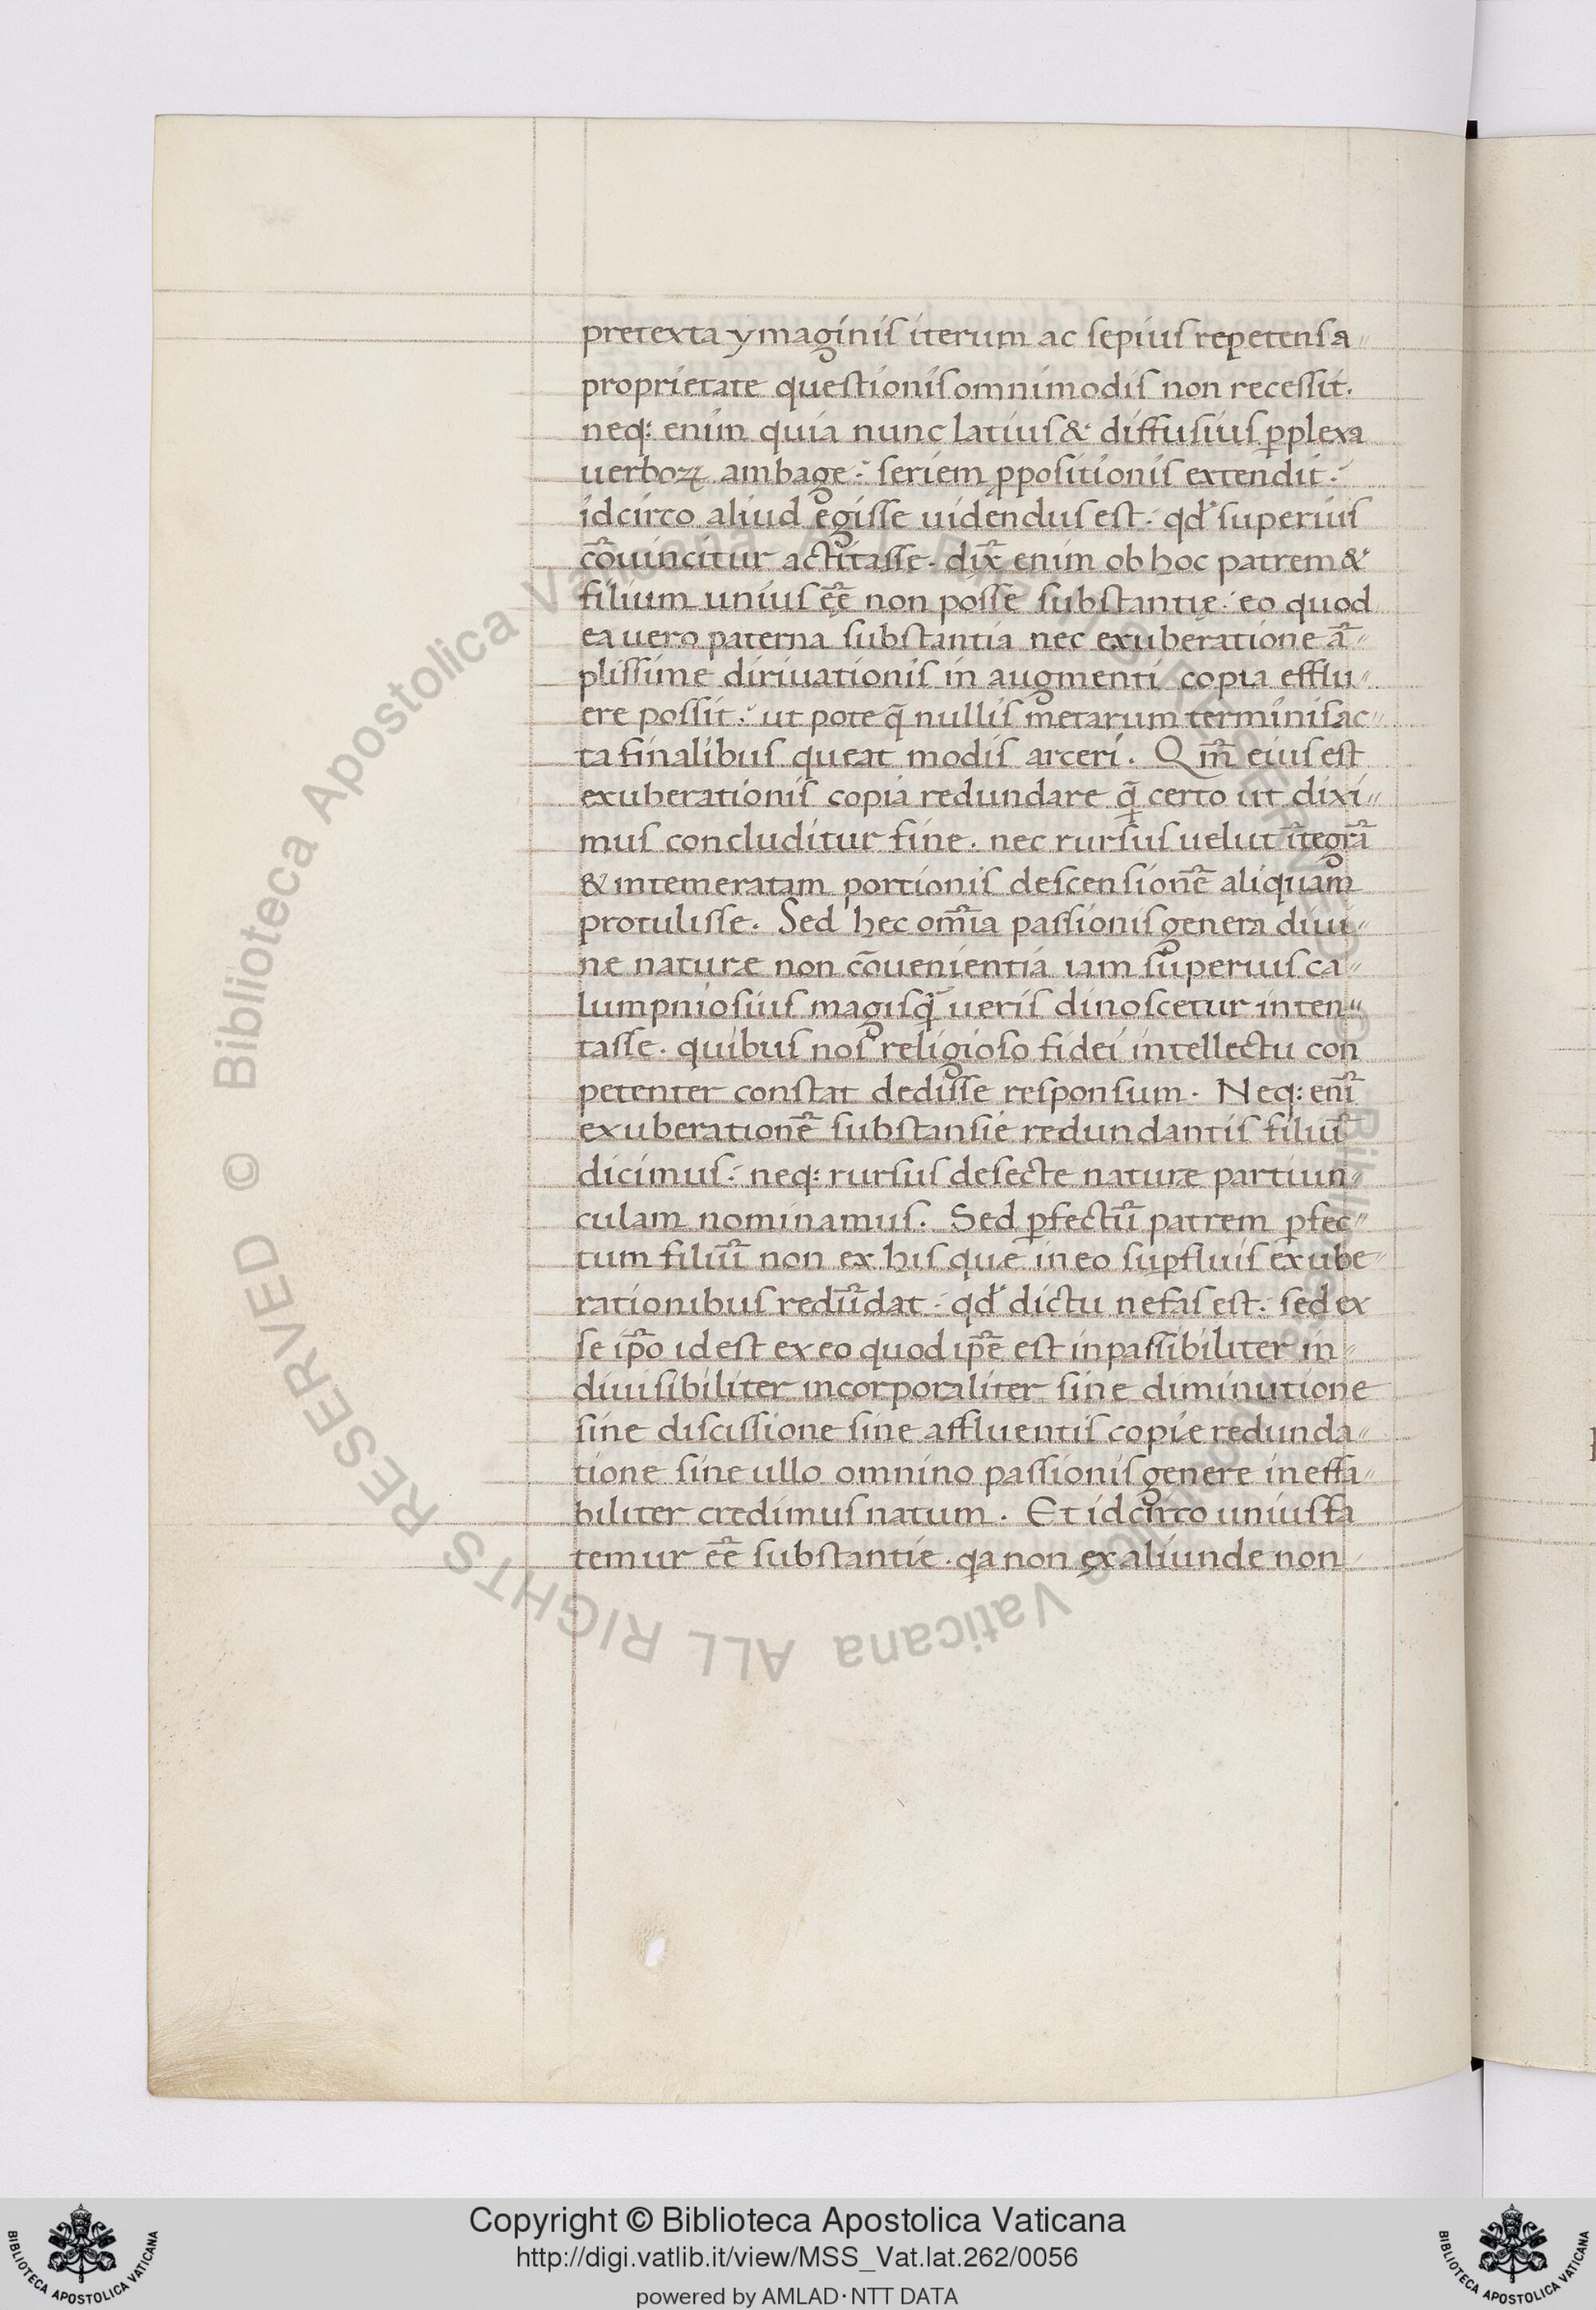 pretexta ymaginis iterum ac sepius repetens a
proprietate questionis omnimodis non recessit.
neq: enim quia nunc latius & diffusius ꝑplexa
uerboꝝ ambage: seriem ꝓpositionis extendit:
idcirco aliud egisse uidendus est. qd' superius
cōuincitur actitasse. dix̄ enim ob hoc patrem &
filium unius ēē non posse substantię. eo quod
ea uero paterna substantia nec exuberatione ā-
plissime diriuationis in augmenti copia efflu-
ere possit. ut pote q̄ nullis metarum terminis ac-
ta finalibus queat modis arceri. Qm̄ eius est
exuberationis copia redundare q̄ certo ut dixi-
mus concluditur fine. nec rursus uelut ītegrā
& intemeratam portionis descensionē aliquam
protulisse. Sed hec om̄ia passionis genera diui-
næ naturæ non cōuenientia iam superius ca-
lumpniosius magisq̄ ueris dinoscetur inten-
tasse. quibus nos religioso fidei intellectu con
petenter constat dedisse responsum. Neq: enī
exuberationē substansie redundantis filiū
dicimus: neq: rursus desecte naturæ partiun-
culam nominamus. Sed ꝑfectū patrem ꝑfec-
tum filiū non ex his quæ in eo suꝑfluis exube-
rationibus redūdat. qd' dictu nefas est. sed ex
se ip̄o id est ex eo quod ip̄e est inpassibiliter in-
diuisibiliter incorporaliter sine diminutione
sine discissione sine affluentis copie redunda-
tione sine ullo omnino passionis genere ineffa-
biliter credimus natum. Et idcirco unius fa
temur ēē substantie. qa non ex aliunde non
© Biblioteca Apostolica Vaticana ALL RIGHTS RESERVED
Copyright © Biblioteca Apostolica Vaticana
http://digi.vatlib.it/view/MSS_Vat.lat.262/0056
powered by AMLAD·NTT DATA
BIBLIOTECA APOSTOLICA VATICANA
BIBLIOTECA APOSTOLICA VATICANA